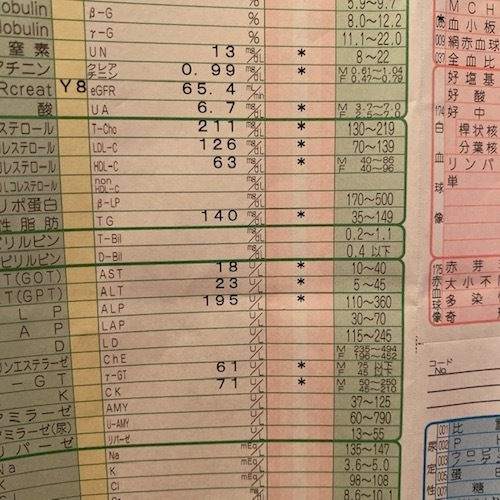 % 5.9~9.7
obulin β-G % 8.0~12.2
γ-G % 11.1~22.0
窒素 UN 13 mg/dL * 8~22
アチニン クレアチニン 0.99 mg/dL * M 0.61~1.04 F 0.47~0.79
Rcreat Y8 eGFR 65.4
酸 UA 6.7 mg/dL * M 3.7~7.0
ステロール T-Cho 211 mg/dL * 130~219
レステロール LDL-C 126 mg/dL * 70~139
レステロール HDL-C 63 mg/dL * M 40~86 F 40~96
コレステロール non HDL-C
リポ蛋白 β-LP mg/dL 170~500
性脂肪 TG 140 mg/dL * 35~149
ビリルビン T-Bil mg/dL 0.2~1.1
ビリルビン D-Bil mg/dL 0.4以下
T(GOT) AST 18 U/L * 10~40
T(GPT) ALT 23 U/L * 5~45
LP ALP 195 U/L * 110~360
AP LAP U/L 30~70
D LD U/L 115~245
ンエステラーゼ ChE U/L M 235~494 F 196~452
-GT γ-GT 61 U/L * M 75以下 F 45以下
K CK 71 U/L * M 50~250 F 45~210
ミラーゼ AMY U/L 37~125
ミラーゼ(尿) U-AMY U/L 60~790
リパーゼ リパーゼ U/L 13~55
Na Na mEq 135~147
K K 3.6~5.0
Cl Cl mEq 98~108
8.6~10.1
MCH
血小板
009 網赤血球
037 全血比
174 白血球像
好塩基
好酸
好中
桿状核
分葉核
リンパ
単
175 赤血球像
赤芽
大小不
多染
奇形
コード No
尿定性
001 比重
002 P
003 ウロビ
005 蛋
007 糖